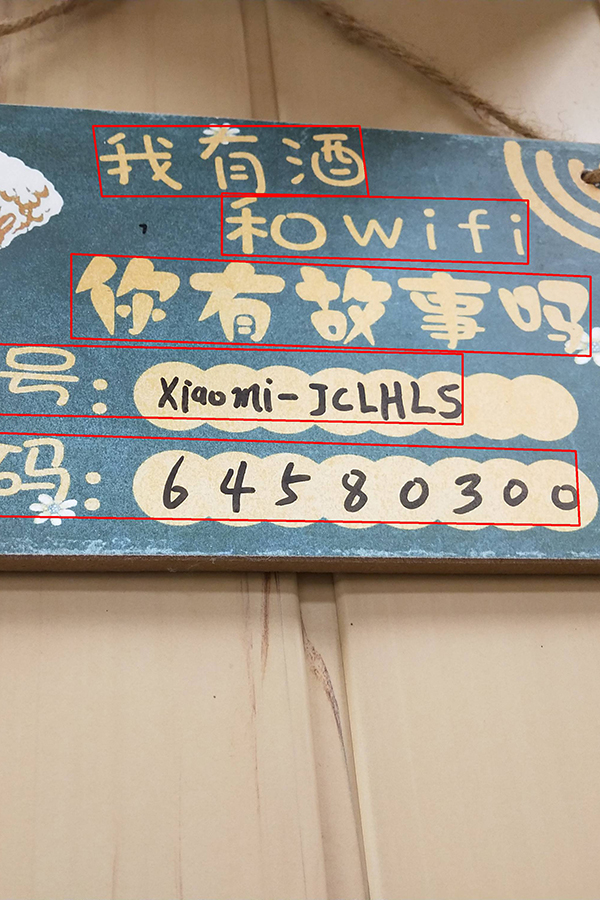 我有酒
和wifi
你有故事吗
号：Xiaomi-JCLHLS
码：64580300